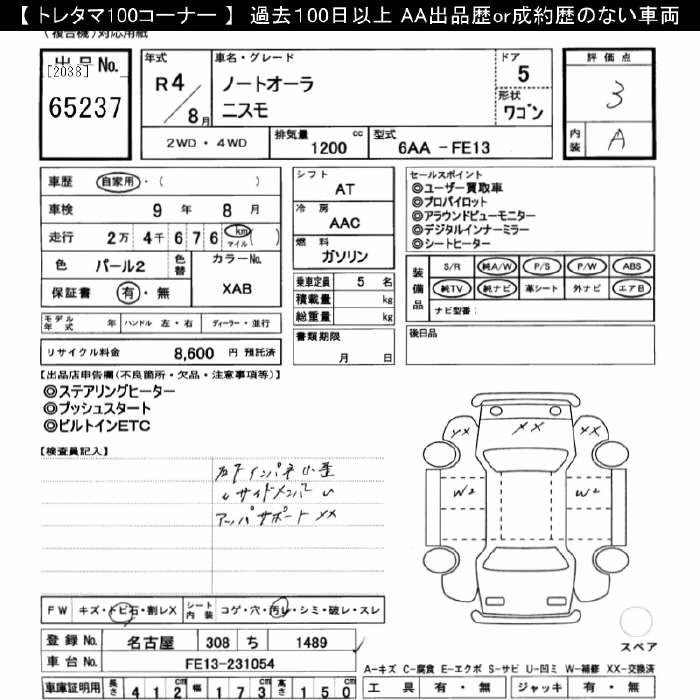 【 トレタマ100コーナー 】 過去100日以上 AA出品歴or成約歴のない車両
(複合機)対応用紙
出品No.
[2038]
65237
年式
R4/8月
車名・グレード
ノートオーラ
ニスモ
ドア
5
形状
ワゴン
2WD ・ 4WD
排気量
1200 cc
型式
6AA - FE13
評価点
3
内装
A
車歴
自家用・( )
車検
9 年 8 月
走行
2万 4千 6 7 6 km マイル ( )
色
パール2
色替
カラーNo.
XAB
保証書
有・無
シフト
AT
冷房
AAC
燃料
ガソリン
乗車定員 5 名
積載量 kg
総重量 kg
セールスポイント
◎ユーザー買取車
◎プロパイロット
◎アラウンドビューモニター
◎デジタルインナーミラー
◎シートヒーター
装備品
S/R 純A/W P/S P/W ABS
純TV 純ナビ 革シート 外ナビ エアB
ナビ型番:
モデル年式 年 ハンドル 左・右 ディーラー・並行
リサイクル料金 8,600 円 預託済
書類期限
月 日
後日品
【出品店申告欄(不良箇所・欠品・注意事項等)】
◎ステアリングヒーター
◎プッシュスタート
◎ビルトインETC
【検査員記入】
インパネ小歪
〃 サイドメンバー 〃
アッパサポート XX
XX XX XX
W2 W2
FW キズ・トビ石・割レX
シート内装 コゲ・穴・汚レ・シミ・破レ・スレ
登録No. 名古屋 308 ち 1489
車台No. FE13-231054
スペア
A-キズ C-腐食 E-エクボ S-サビ U-凹ミ W-補修 XX-交換済
車庫証明用 長さ 412cm 幅 173cm 高さ 150cm
工具 有・無 ジャッキ 有・無